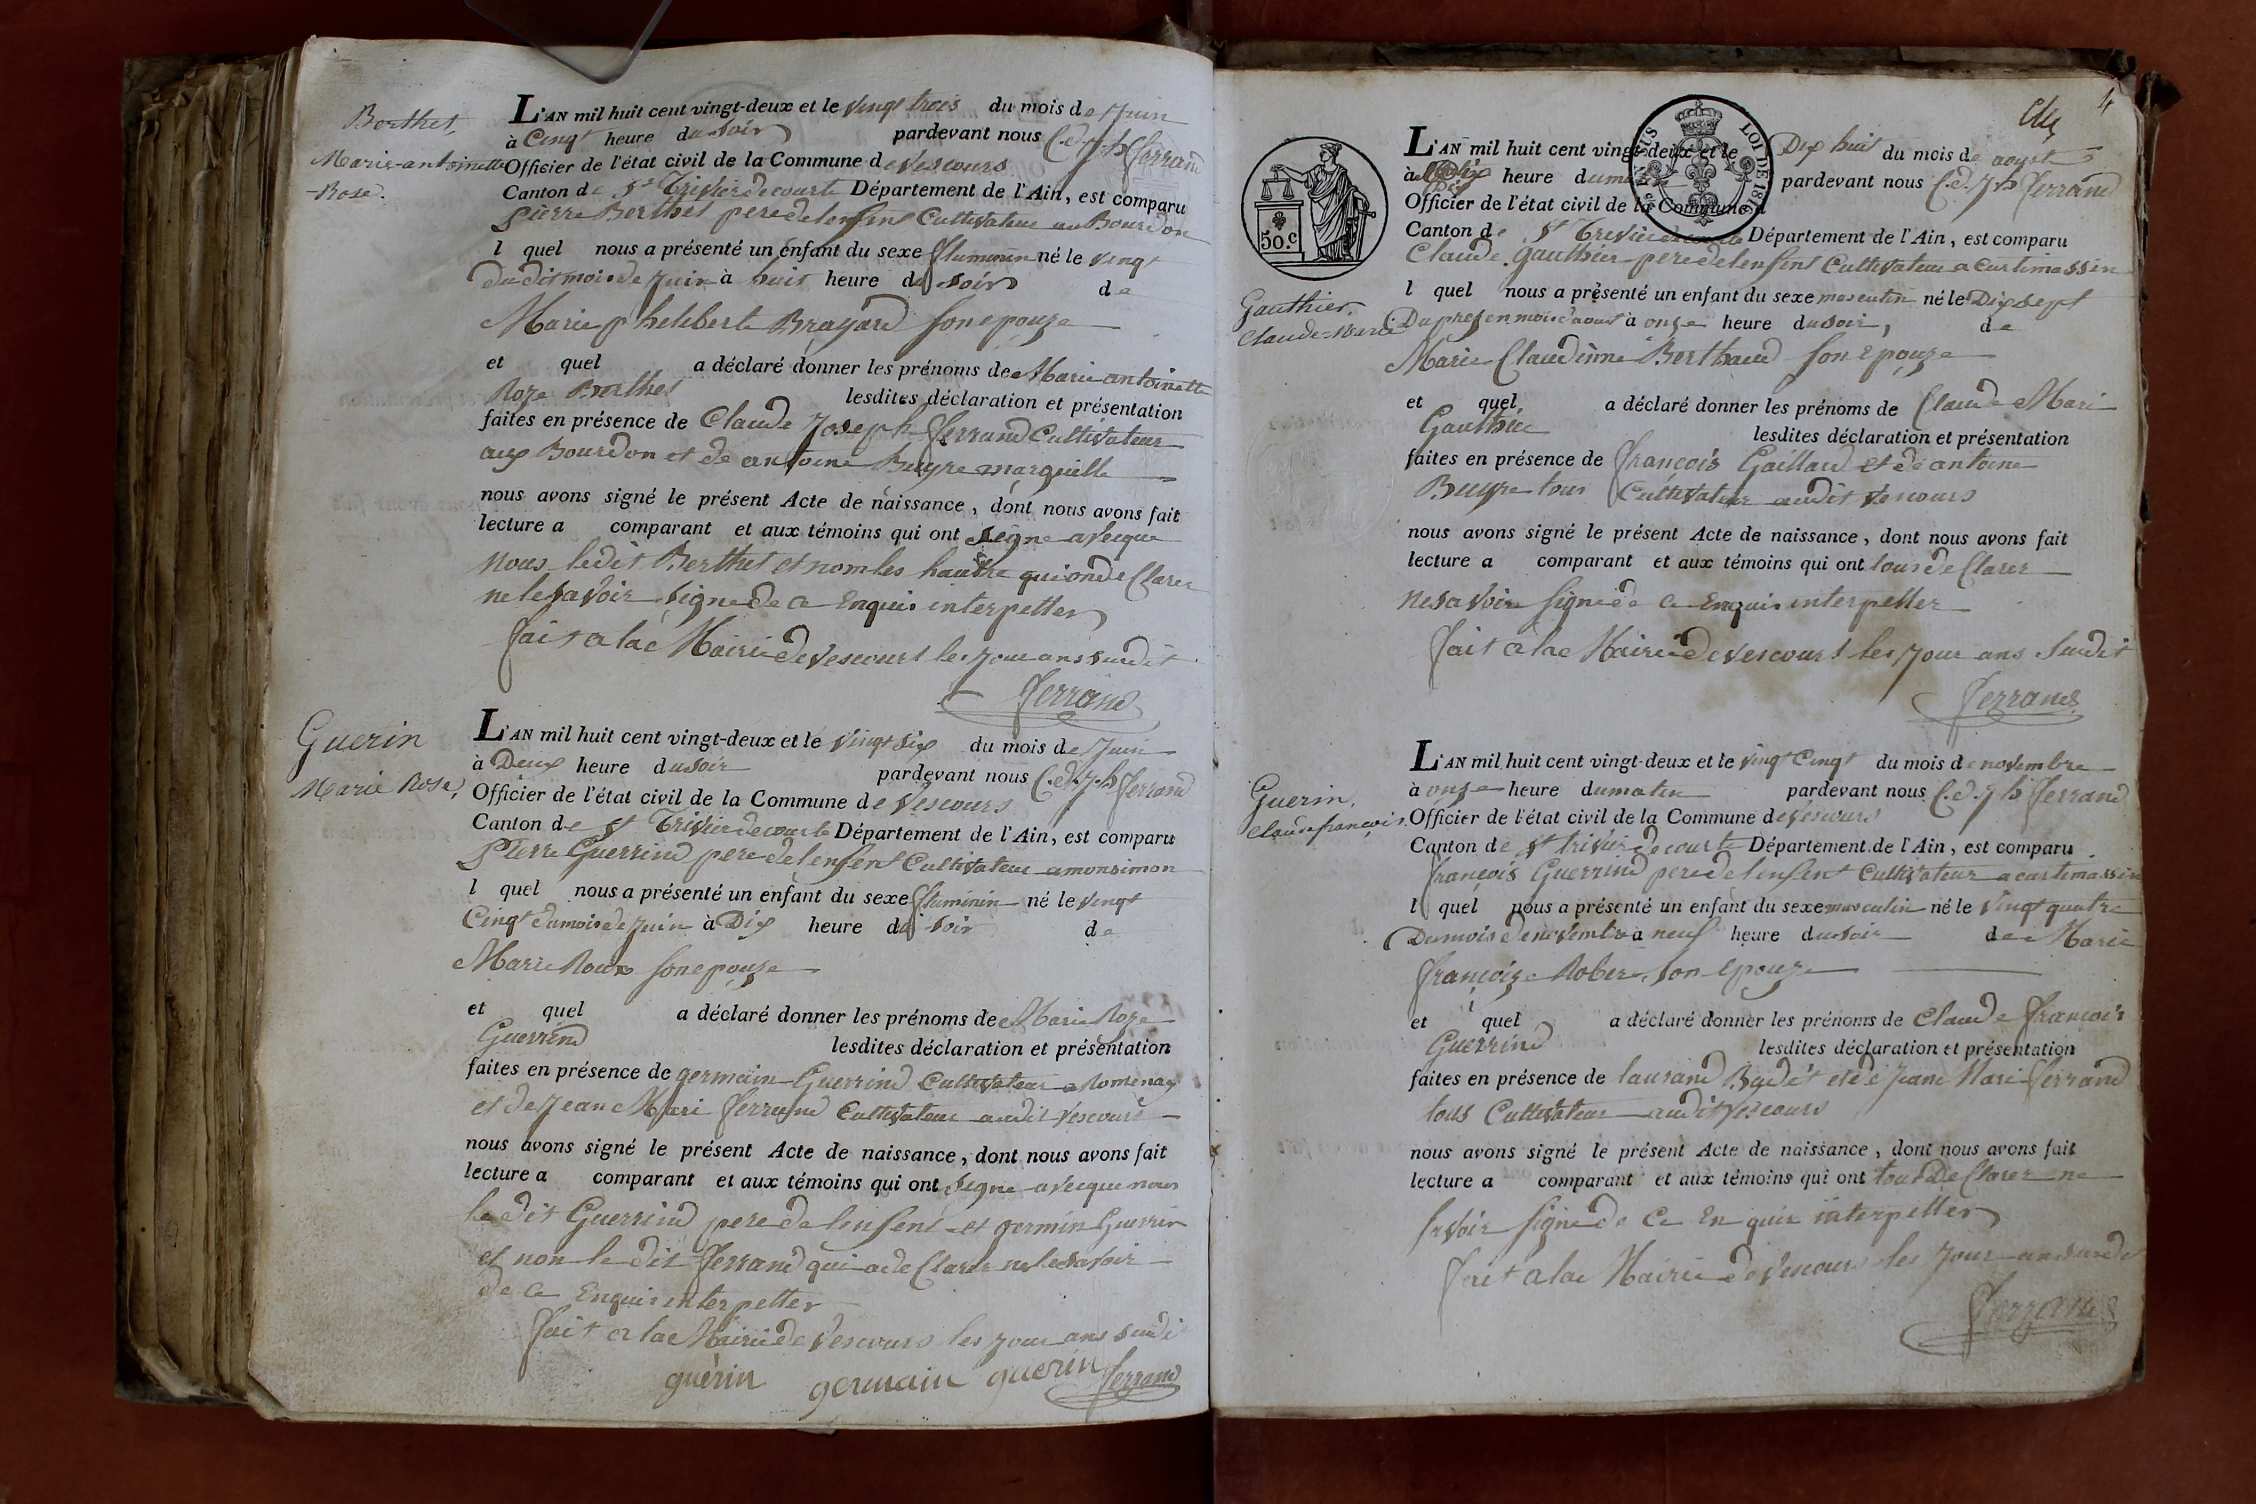 Berthet,
Marie-antoinette
-Rose.
L'AN mil huit cent vingt-deux et le vingt trois du mois de Juin
à Cinqt heure du soir pardevant nous C.d. Jh ferrand
Officier de l'état civil de la Commune de Vescours
Canton de St Trivier de courte Département de l'Ain, est comparu
Pierre Berthet pere de lenfent Cultivateur au Bourdon
l quel nous a présenté un enfant du sexe fluminin né le vingt
du dit mois de Juin à huit heure du soir de
Marie philiberte Brayard son epouze
et quel a déclaré donner les prénoms de Marie antoinette
Roze Berthet lesdites déclaration et présentation
faites en présence de Claude Joseph ferrand Cultivateur
aux Bourdon et de antoine Buyre marguille
nous avons signé le présent Acte de naissance, dont nous avons fait
lecture a comparant et aux témoins qui ont signe avecque
nous ledit Berthet et nom les hautre qui onde Clarer
ne le savoir signe de ce Enquis interpeller
fait a lac Mairie de vescours les jour ans susdit
ferrand
Guerin
Marie Rose,
L'AN mil huit cent vingt-deux et le vingt six du mois de Juin
à Deux heure du soir pardevant nous C.d. J.h ferrand
Officier de l'état civil de la Commune de Vescours
Canton de St Trivier de courte Département de l'Ain, est comparu
Pierre Guerrind pere de lenfent Cultivateur a monsimon
l quel nous a présenté un enfant du sexe fluminin né le vingt
Cinqt du mois de Juin à Dix heure du soir de
Marie Roux son epouze
et quel a déclaré donner les prénoms de Marie Roze
Guerrind lesdites déclaration et présentation
faites en présence de germain Guerrind Cultivateur a Romenay
et de Jean Mari ferrand Cultivateur audit vescours
nous avons signé le présent Acte de naissance, dont nous avons fait
lecture a comparant et aux témoins qui ont signe avecque nous
le dit Guerrind pere de lenfent et germin Guerrin
et non le dit ferrand qui a de Clarer ne le savoir
de ce Enquis interpeller
fait a lac Mairie de Vescours les jour ans susdi
guérin germain guerin ferrand
4
TIMBRE
LOI DE 1816
50.c
Gauthier,
Claude-Marie
L'AN mil huit cent vingt-deux et le Dix huit du mois de aoust
à Dix heure du matin pardevant nous C.d. Jh ferrand
Officier de l'état civil de la Commune d
Canton de St Trivier de courte Département de l'Ain, est comparu
Claude gauthier pere de lenfent Cultivateur a Curtimassin
l quel nous a présenté un enfant du sexe masculin né le Dix sept
Du presen mois d'aoust à onze heure du soir, de
Marie Claudinne Berthaud son epouze
et quel a déclaré donner les prénoms de Claude Mari
Gauthie lesdites déclaration et présentation
faites en présence de françois Gaillard et de antoine
Buyre tous Cultivateur audit vescours
nous avons signé le présent Acte de naissance, dont nous avons fait
lecture a comparant et aux témoins qui ont tous de Clarer
ne savoir signe de ce Enquis interpeller
fait a lac Mairie de vescours les jour ans susdit
ferrand
Guerin,
Claude françois.
L'AN mil huit cent vingt-deux et le vingt Cinqt du mois de novembre
à onze heure du matin pardevant nous C.d. Jh ferrand
Officier de l'état civil de la Commune de Vescours
Canton de St trivier de courte Département de l'Ain, est comparu
françois Guerrind pere de lenfent Cultivateur a curtimassin
l quel nous a présenté un enfant du sexe masculin né le vingt quatre
Du mois de novembre à neuf heure du soir de Marie
françoize Rober son epouze
et quel a déclaré donner les prénoms de Claude françois
Guerrind lesdites déclaration et présentation
faites en présence de laurand et de Jean Mari ferrand
tous Cultivateur audit vescours
nous avons signé le présent Acte de naissance, dont nous avons fait
lecture a comparant et aux témoins qui ont tous De Clarer ne
savoir signe de ce Enquis interpeller
fait a lac Mairie de Vescours les jour an susdit
ferrand